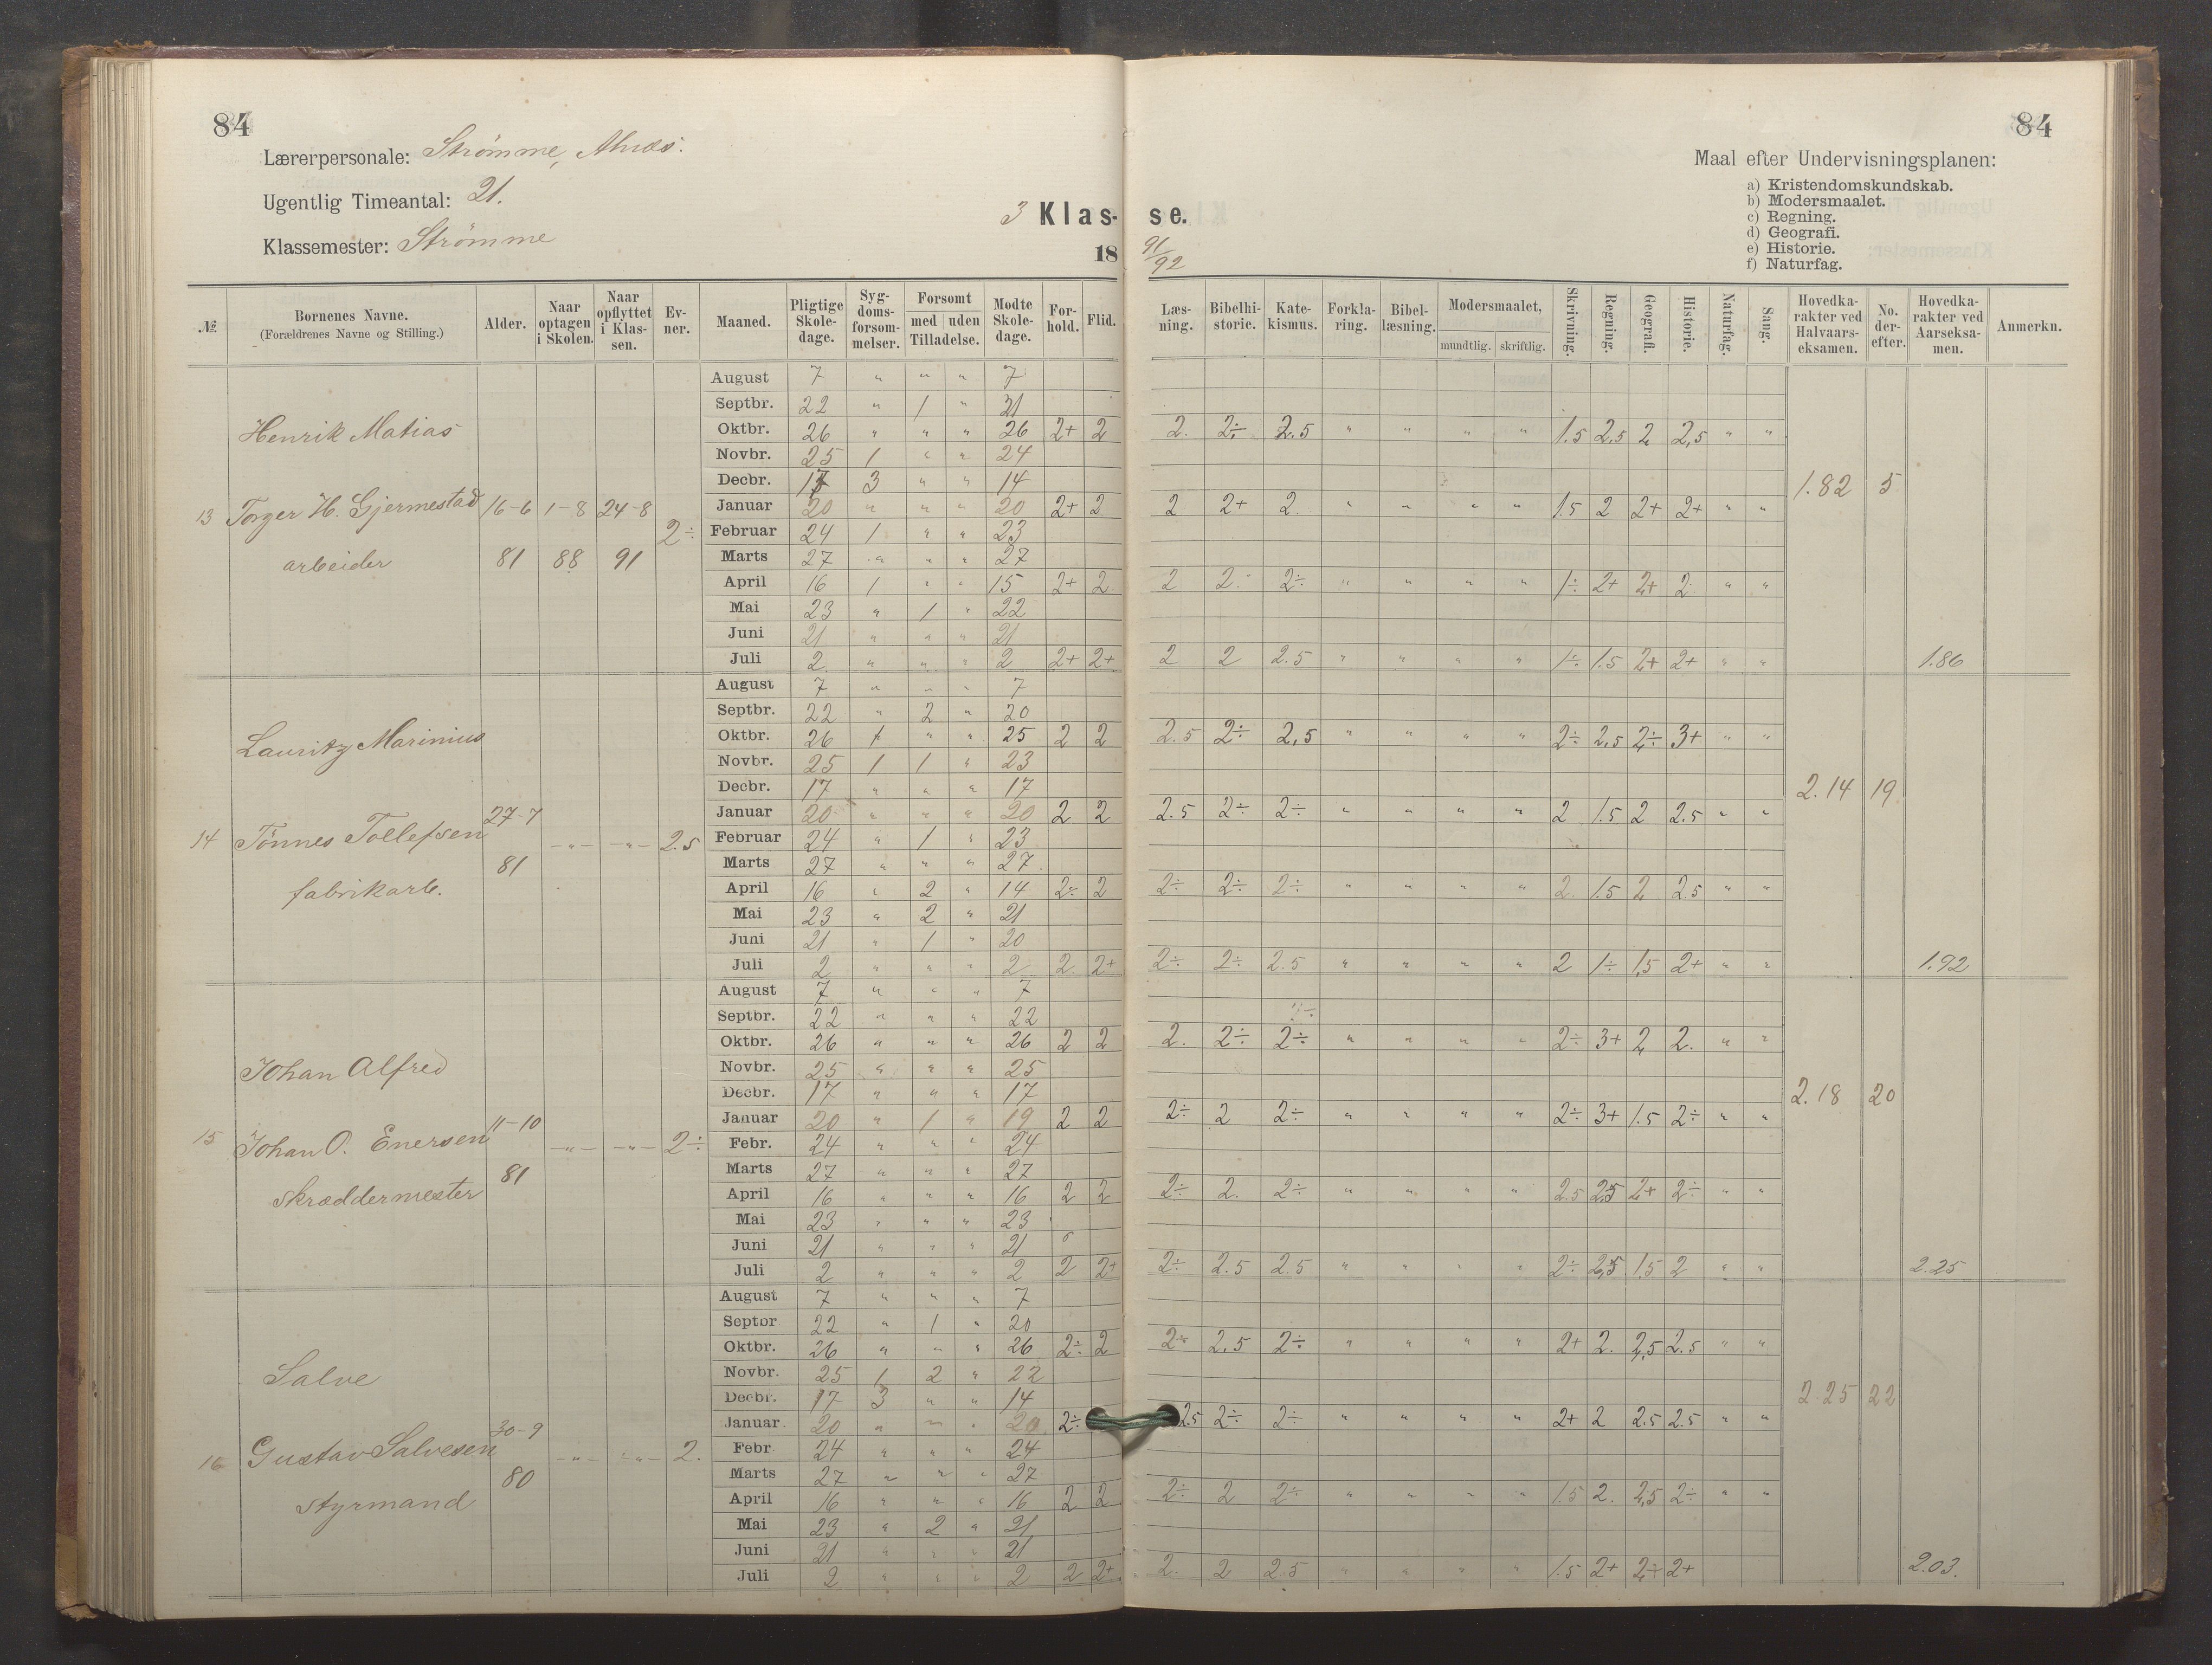 84
Lærerpersonale: Strömme,
Ugentlig Timeantal: 21.
Klassemester: Strömme
3 Klas-
18
№
Børnenes Navne.
(Forældrenes Navne og Stilling.)
Alder.
Naar optagen i Skolen.
Naar opflyttet i Klassen.
Evner.
Maaned.
Pligtige Skoledage.
Sygdomsforsømmelser.
Forsømt
med | uden
Tilladelse.
Mødte Skoledage.
Forhold.
Flid.
84
Maal efter Undervisningsplanen:
a) Kristendomskundskab.
b) Modersmaalet.
c) Regning.
d) Geografi.
e) Historie.
f) Naturfag.
se.
91/92
Læsning.
Bibelhistorie.
Katekismus.
Forklaring.
Bibellæsning.
Modersmaalet,
mundtlig. skriftlig.
Skrivning.
Regning.
Geografi.
Historie.
Naturfag.
Sang.
Hovedkarakter ved Halvaarseksamen.
No. derefter.
Hovedkarakter ved Aarseksamen.
Anmerkn.
August 7 " " " 7
Septbr. 22 " 1 " 21
Henrik Matias
Oktbr. 26 " " " 26 2+ 2 2. 2÷ 2.5 " " " " 1.5 2,5 2 2,5 " "
Novbr. 25 1 " " 24
Decbr. 17 3 " " 14 1.82 5
13 Torger H. Gjermestad 16-6 1-8 24-8 2÷
Januar 20 " " " 20 2+ 2 2 2+ 2 " " " " 1.5 2 2+ 2+ " "
Februar 24 1 " " 23
arbeider 81 88 91
Marts 27 " " " 27
April 16 1 " " 15 2+ 2 2 2 2÷ " " " " 1÷ 2+ 2+ 2 " "
Mai 23 " 1 " 22
Juni 21 " " " 21
Juli 2 " " " 2 2+ 2+ 2 2 2.5 " " " " 1÷ 1.5 2+ 2+ " " 1.86
August 7 " " " 7
Septbr. 22 " 2 " 20
Lauritz Marinius
Oktbr. 26 1 " " 25 2 2 2.5 2÷ 2,5 " " " " 2÷ 2,5 2÷ 3+ " "
Novbr. 25 1 1 " 23
Decbr. 17 " " " 17 2.14 19
Januar 20 " " " 20 2 2 2.5 2÷ 2÷ " " " " 2 1.5 2 2.5 " "
14 Tönnes Tollefsen 27-7 81 -"- -"- 2.5
Februar 24 " 1 " 23
Marts 27 " " " 27
fabrikarb.
April 16 " 2 " 14 2÷ 2 2÷ 2÷ 2÷ " " " " 2. 1.5 2 2.5 " "
Mai 23 " 2 " 21
Juni 21 " 1 " 20
Juli 2 " " " 2 2 2+ 2÷ 2÷ 2.5 " " " " 2 1÷ 1,5 2+ " " 1.92
August 7 " " " 7
Septbr. 22 " " " 22
Oktbr. 26 " " " 26 2 2 2. 2÷ 2÷ " " " " 2÷ 3+ 2 2. " "
Johan Alfred
Novbr. 25 " " " 25
Decbr. 17 " " " 17 2.18 20
Januar 20 " 1 " 19 2 2 2÷ 2 2÷ " " " " 2÷ 3+ 1.5 2÷ " "
15 Johan O. Enersen 11-10 81 -"- -"- 2÷
Febr. 24 " " " 24
Marts 27 " " " 27
skræddermester
April 16 " " " 16 2 2 2÷ 2. 2÷ " " " " 2.5 2,5 2+ 2÷ " "
Mai 23 " " " 23
Juni 21 " " " 21
Juli 2 " " " 2 2 2+ 2÷ 2.5 2.5 " " " " 2÷ 2,5 1.5 2 " " 2.25
August 7 " " " 7
Septbr 22 " 1 " 20
Oktbr. 26 " " " 26 2÷ 2 2÷ 2.5 2÷ " " " " 2+ 2. 2,5 2.5 " "
Salve
Novbr. 25 1 2 " 22
Decbr. 17 3 " " 14 2.25 22
Januar 20 " " " 20 2÷ 2.5 2÷ 2÷ " " " " 2+ 2 2.5 2.5 " "
16 Gustav Salvesen 30-9 80 -"- -"- 2.
Febr 24 " " " 24
Marts 27 " " " 27
styrmand
April 16 " " " 16 2 2 2÷ 2 2÷ " " " " 1.5 2. 2,5 2÷ " "
Mai 23 " 2 " 21
Juni 21 " " " 21
Juli 2 " " " 2 2 2+ 2. 2 2.5 " " " " 1.5 2+ 2÷ 2+ 2.03.